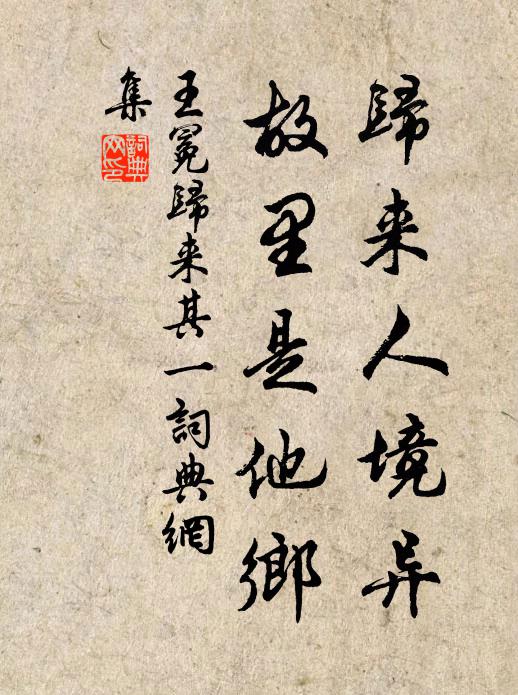 歸来人境异
故里是他鄉
王冕歸来其一詞典網
集
詞典网印